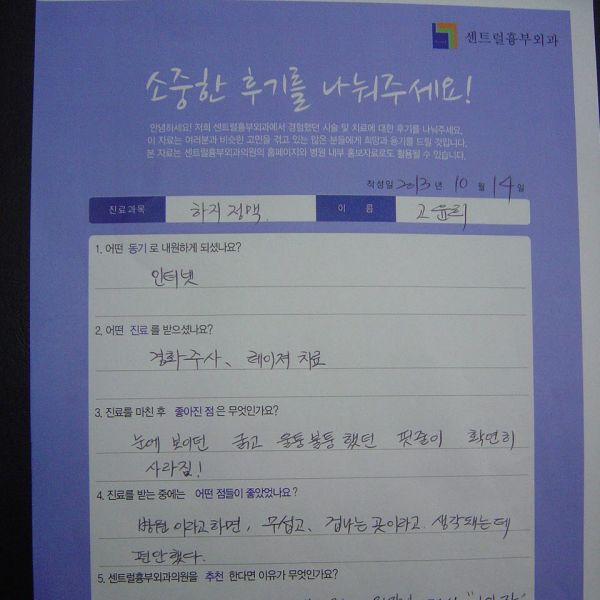 센트럴흉부외과
소중한 후기를 나눠주세요!
안녕하세요! 저희 센트럴흉부외과에서 경험했던 시술 및 치료에 대한 후기를 나눠주세요.
이 자료는 여러분과 비슷한 고민을 겪고 있는 많은 분들에게 희망과 용기를 드릴 것입니다.
본 자료는 센트럴흉부외과의원의 홈페이지와 병원 내부 홍보자료로도 활용될 수 있습니다.
작성일 2013 년 10 월 14 일
진료과목 하지정맥. 이 름 고윤희
1. 어떤 동기 로 내원하게 되셨나요?
인터넷
2. 어떤 진료 를 받으셨나요?
경화주사、 레이져 치료
3. 진료를 마친 후 좋아진 점 은 무엇인가요?
눈에 보이던 굵고 울퉁불퉁했던 핏줄이 확연히
사라짐!
4. 진료를 받는 중에는 어떤 점들이 좋았었나요?
병원 이라고하면, 무섭고、 겁나는 곳이라고 생각돼는데
편안했다.
5. 센트럴흉부외과의원을 추천 한다면 이유가 무엇인가요?